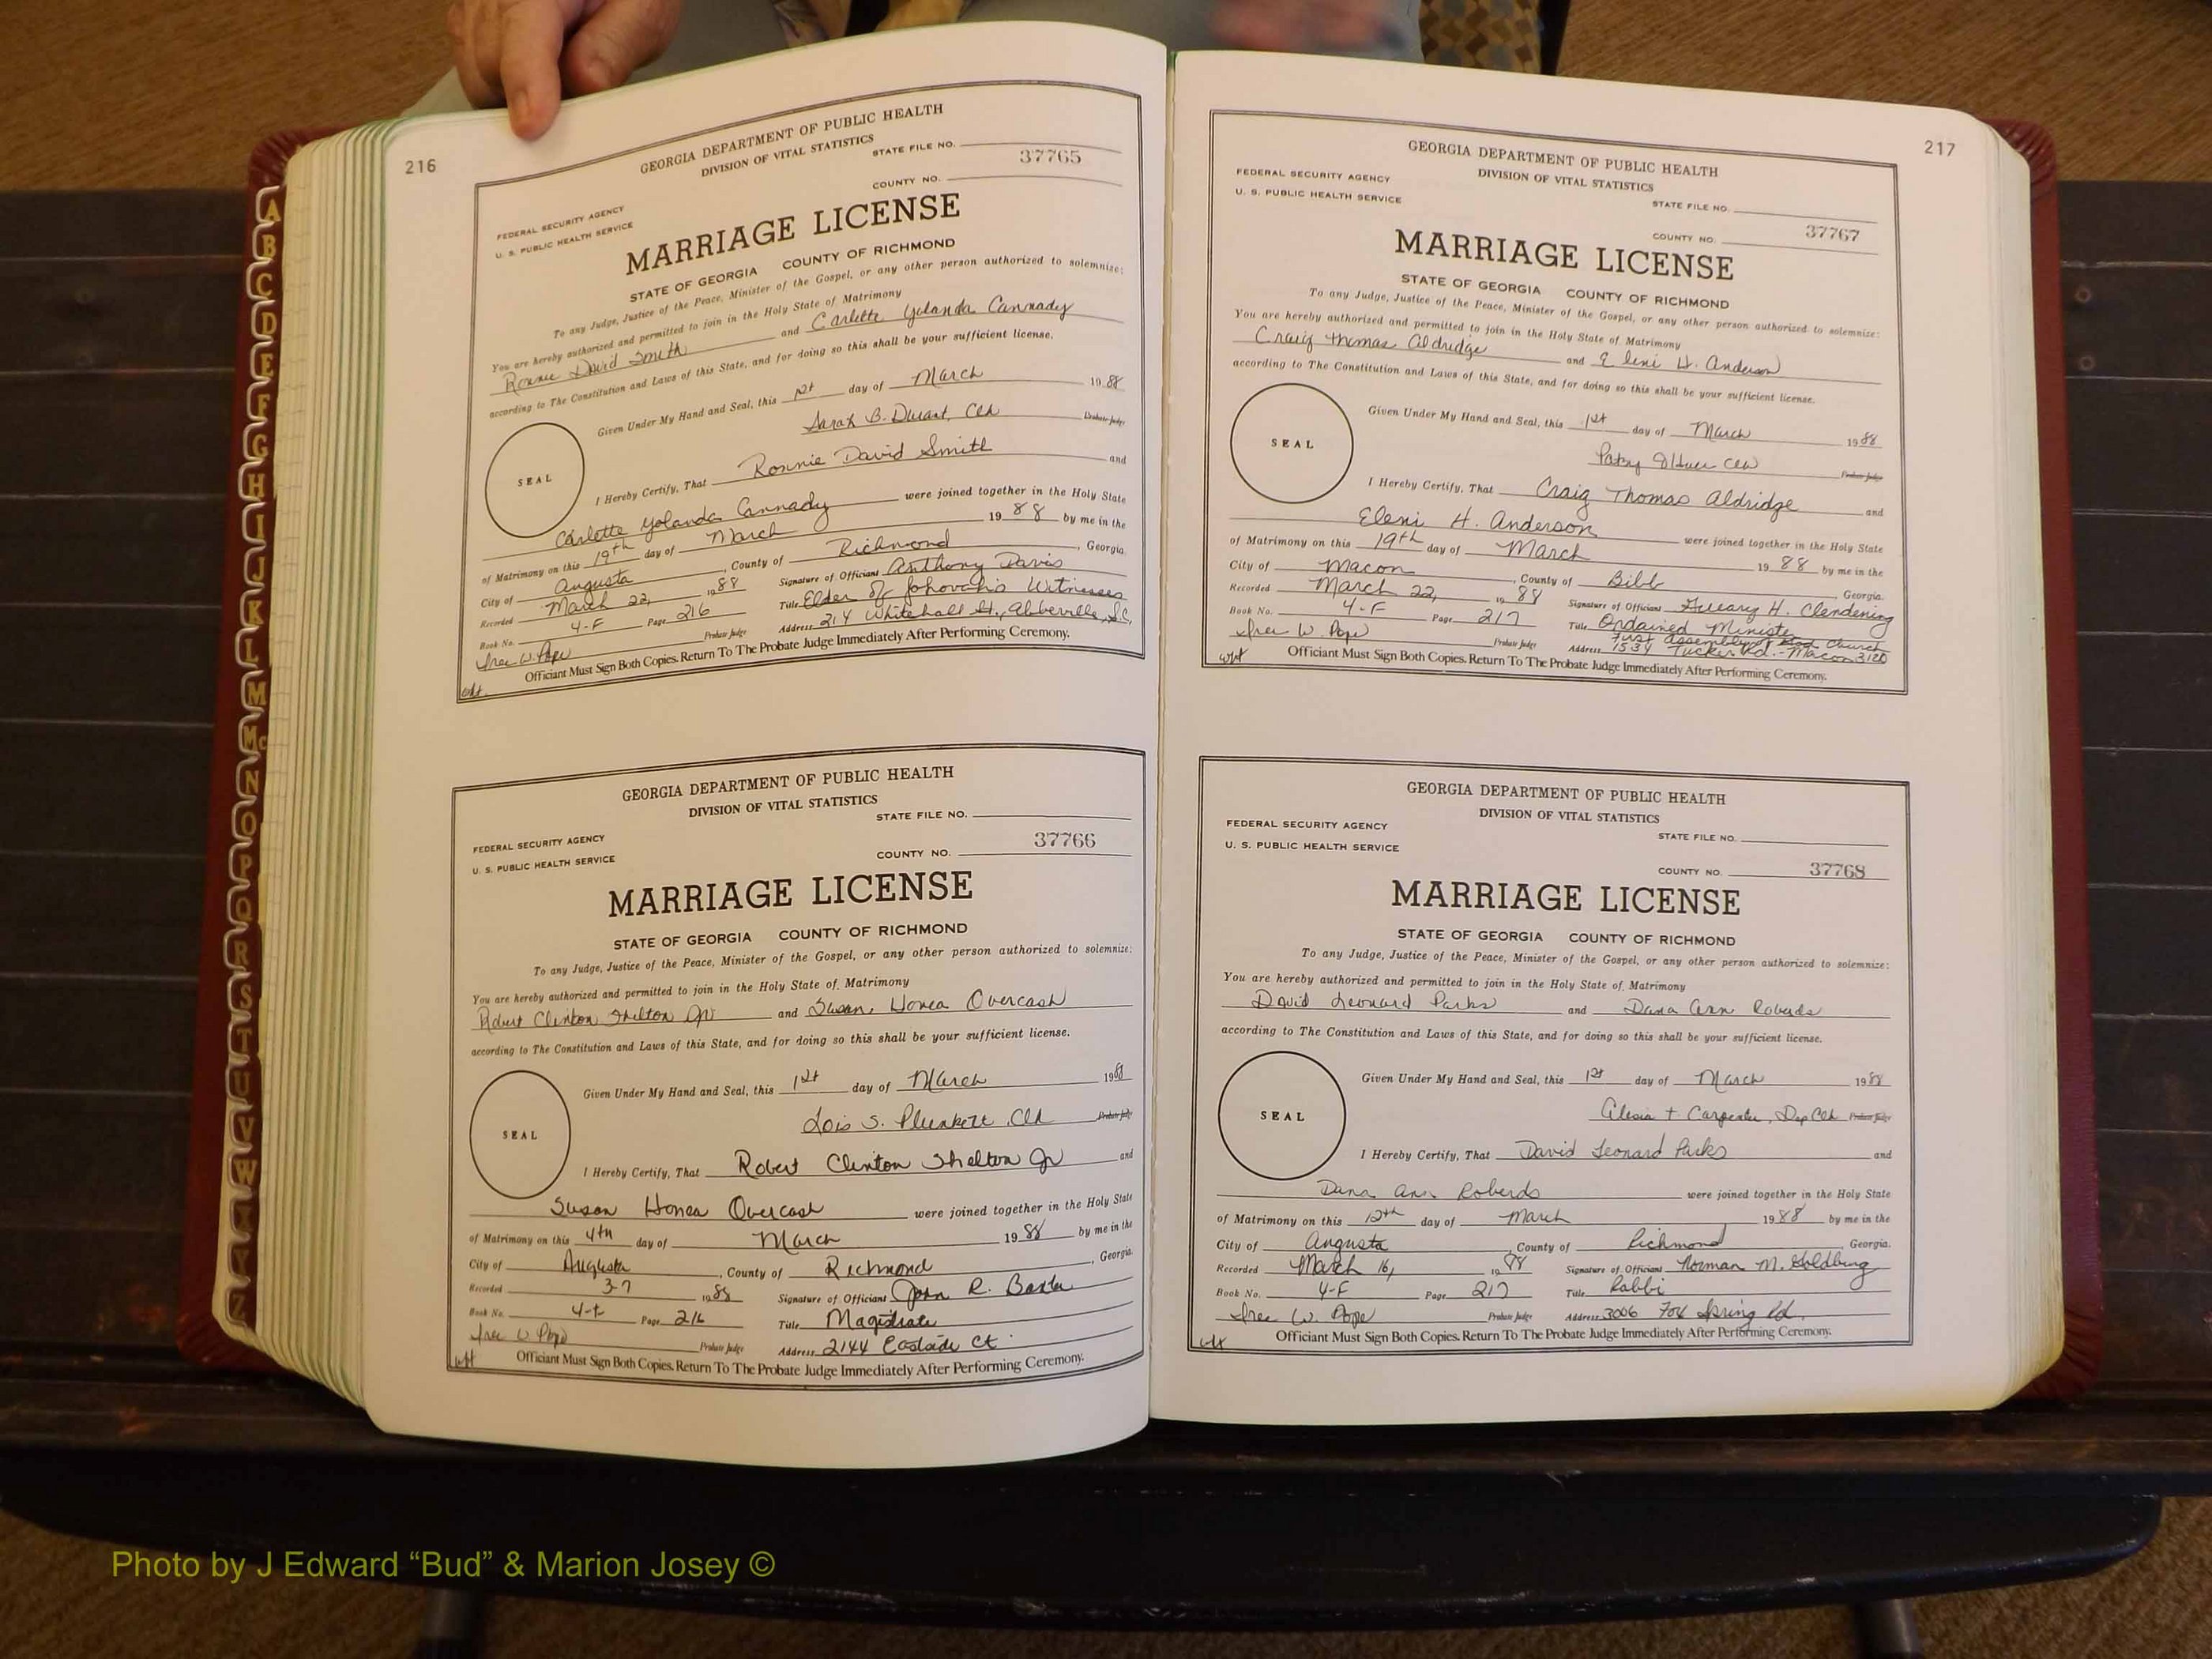 216
GEORGIA DEPARTMENT OF PUBLIC HEALTH
DIVISION OF VITAL STATISTICS
STATE FILE NO.
37765
FEDERAL SECURITY AGENCY
U. S. PUBLIC HEALTH SERVICE
COUNTY NO.
MARRIAGE LICENSE
STATE OF GEORGIA COUNTY OF RICHMOND
To any Judge, Justice of the Peace, Minister of the Gospel, or any other person authorized to solemnize:
You are hereby authorized and permitted to join in the Holy State of Matrimony
Ronnie David Smith and Carlette Yolanda Cannady
according to The Constitution and Laws of this State, and for doing so this shall be your sufficient license.
Given Under My Hand and Seal, this 1st day of March 1988
Sarah B. Clk Probate Judge
SEAL
I Hereby Certify, That Ronnie David Smith and
Carlette Yolanda Cannady were joined together in the Holy State
of Matrimony on this 19th day of March 1988 by me in the
City of Augusta, County of Richmond, Georgia.
Recorded March 22, 1988 Signature of Officiant Anthony Davis
Book No. 4-F Page 216 Title Elder of Jehovah's Witnesses
Probate Judge Address 214 Whitehall St., Abbeville, S.C.
Officiant Must Sign Both Copies. Return To The Probate Judge Immediately After Performing Ceremony.
GEORGIA DEPARTMENT OF PUBLIC HEALTH
DIVISION OF VITAL STATISTICS
STATE FILE NO.
FEDERAL SECURITY AGENCY
U. S. PUBLIC HEALTH SERVICE
COUNTY NO. 37766
MARRIAGE LICENSE
STATE OF GEORGIA COUNTY OF RICHMOND
To any Judge, Justice of the Peace, Minister of the Gospel, or any other person authorized to solemnize:
You are hereby authorized and permitted to join in the Holy State of Matrimony
Robert Clinton Shelton Jr and Susan Honea Overcash
according to The Constitution and Laws of this State, and for doing so this shall be your sufficient license.
Given Under My Hand and Seal, this 1st day of March 1988
Lois S. Plunkett, Clk Probate Judge
SEAL
I Hereby Certify, That Robert Clinton Shelton Jr and
Susan Honea Overcash were joined together in the Holy State
of Matrimony on this 4th day of March 1988 by me in the
City of Augusta, County of Richmond, Georgia.
Recorded 3-7 1988 Signature of Officiant John R. Baxter
Book No. 4-F Page 216 Title Magistrate
Probate Judge Address 2144 Eastside Ct.
Officiant Must Sign Both Copies. Return To The Probate Judge Immediately After Performing Ceremony.
217
GEORGIA DEPARTMENT OF PUBLIC HEALTH
DIVISION OF VITAL STATISTICS
FEDERAL SECURITY AGENCY
U. S. PUBLIC HEALTH SERVICE
STATE FILE NO.
COUNTY NO. 37767
MARRIAGE LICENSE
STATE OF GEORGIA COUNTY OF RICHMOND
To any Judge, Justice of the Peace, Minister of the Gospel, or any other person authorized to solemnize:
You are hereby authorized and permitted to join in the Holy State of Matrimony
Craig Thomas Aldridge and Eleni H. Anderson
according to The Constitution and Laws of this State, and for doing so this shall be your sufficient license.
Given Under My Hand and Seal, this 1st day of March 1988
Patsy Clk Probate Judge
SEAL
I Hereby Certify, That Craig Thomas Aldridge and
Eleni H. Anderson were joined together in the Holy State
of Matrimony on this 19th day of March 1988 by me in the
City of Macon, County of Bibb Georgia.
Recorded March 22, 1988 Signature of Officiant H. Clendening
Book No. 4-F Page 217 Title Ordained Minister
First Assembly of God Church
Probate Judge Address 1534 Tucker Rd. - Macon 3120
Officiant Must Sign Both Copies. Return To The Probate Judge Immediately After Performing Ceremony.
GEORGIA DEPARTMENT OF PUBLIC HEALTH
DIVISION OF VITAL STATISTICS
FEDERAL SECURITY AGENCY
STATE FILE NO.
U. S. PUBLIC HEALTH SERVICE
COUNTY NO. 37768
MARRIAGE LICENSE
STATE OF GEORGIA COUNTY OF RICHMOND
To any Judge, Justice of the Peace, Minister of the Gospel, or any other person authorized to solemnize:
You are hereby authorized and permitted to join in the Holy State of Matrimony
David Leonard Parks and Dana Ann Roberds
according to The Constitution and Laws of this State, and for doing so this shall be your sufficient license.
Given Under My Hand and Seal, this 1st day of March 1988
Alesia T Carpenter, Dep Clk Probate Judge
SEAL
I Hereby Certify, That David Leonard Parks and
Dana Ann Roberds were joined together in the Holy State
of Matrimony on this 12th day of March 1988 by me in the
City of Augusta, County of Richmond Georgia.
Recorded March 16, 1988 Signature of Officiant Norman M. Goldberg
Book No. 4-F Page 217 Title Rabbi
Probate Judge Address 3006 Fox Spring Rd.
Officiant Must Sign Both Copies. Return To The Probate Judge Immediately After Performing Ceremony.
A
B
C
D
E
F
G
H
I
J
K
L
M
Mc
N
O
P
Q
R
S
T
U
V
W
X
Y
Z
Photo by J Edward “Bud” & Marion Josey ©